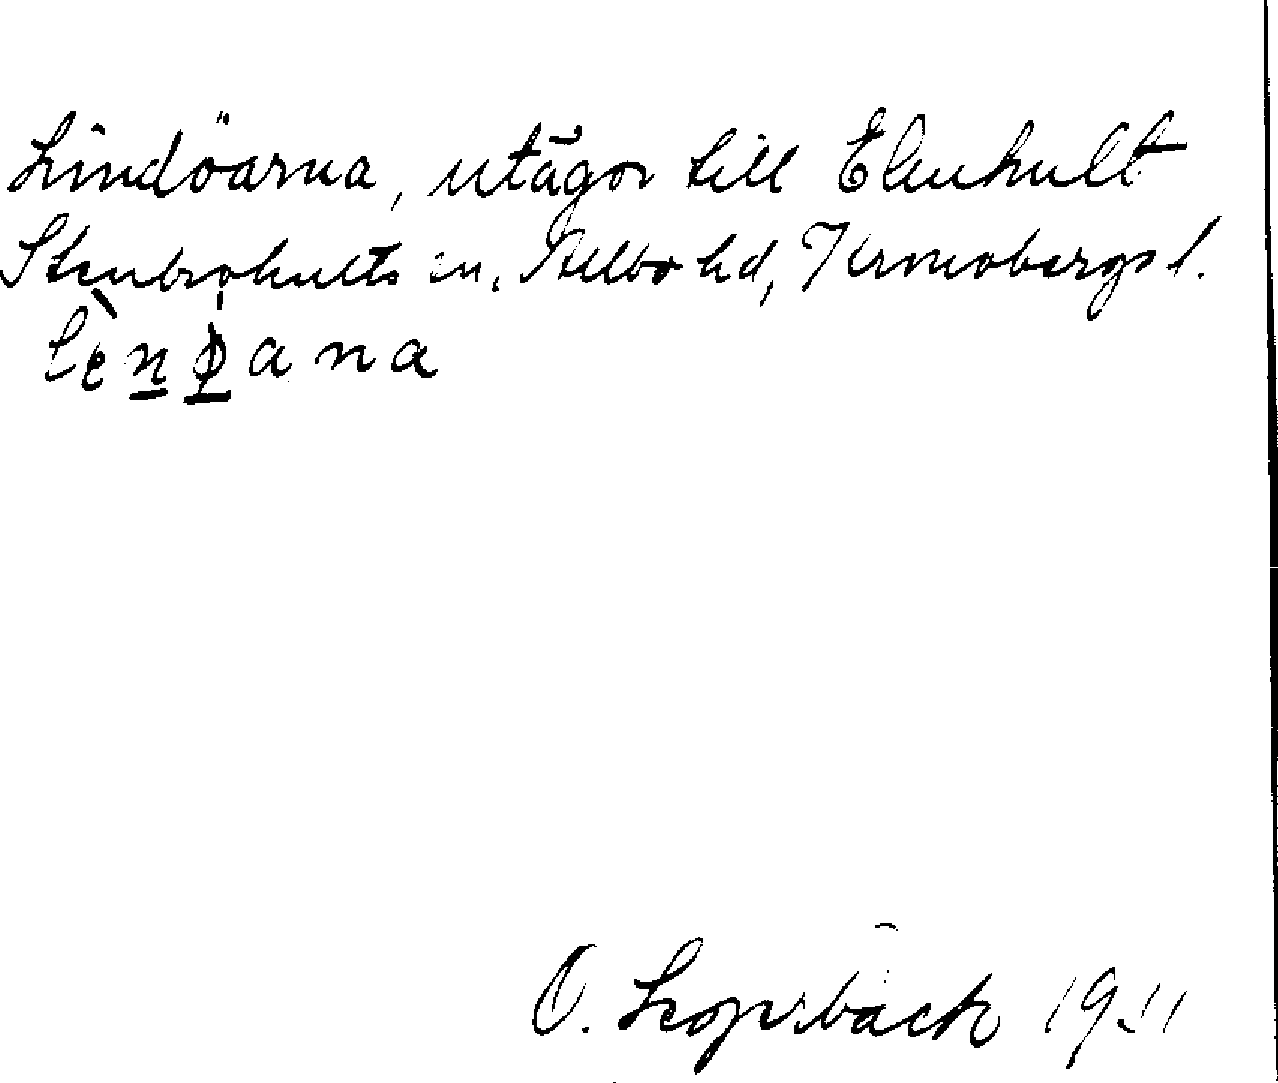 Lindöarna, utägor till Elmhult
Stenbrohults sn, Allbo hd, Kronobergs l.
O. Lagerbäck 19